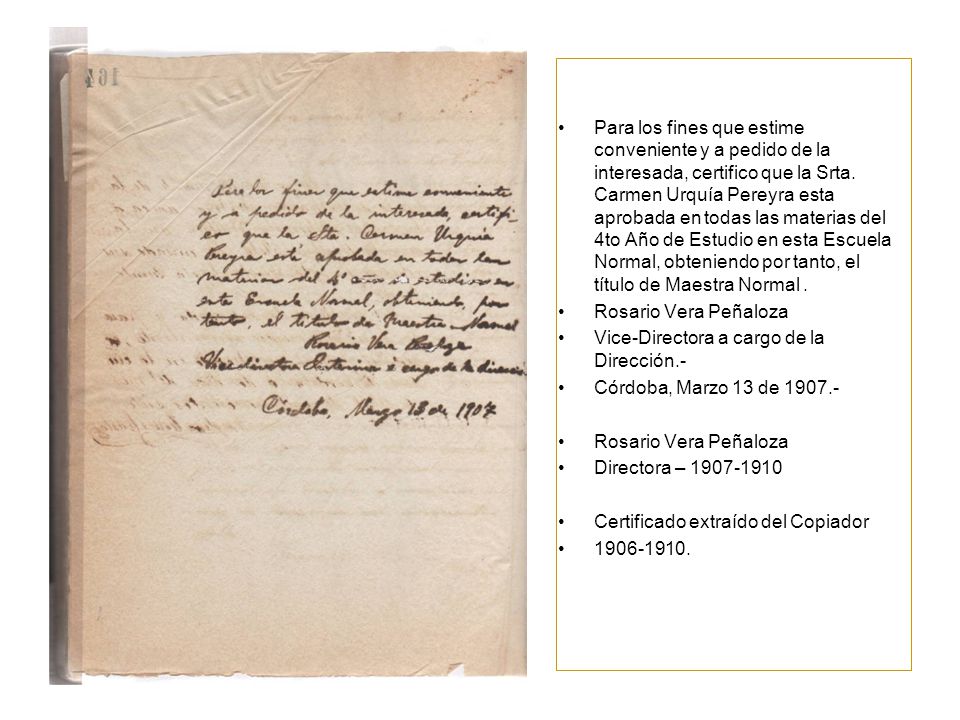 164
Para los fines que estime conveniente
y á pedido de la interesada, certifi-
co que la Sta. Carmen Urquía
Pereyra está aprobada en todas las
materias del 4º año de estudios en
esta Escuela Normal, obteniendo, por
tanto, el título de Maestra Normal
Rosario Vera Peñaloza
Vicedirectora Interina á cargo de la dirección
Córdoba, Marzo 13 de 1907
• Para los fines que estime
conveniente y a pedido de la
interesada, certifico que la Srta.
Carmen Urquía Pereyra esta
aprobada en todas las materias del
4to Año de Estudio en esta Escuela
Normal, obteniendo por tanto, el
título de Maestra Normal .
• Rosario Vera Peñaloza
• Vice-Directora a cargo de la
Dirección.-
• Córdoba, Marzo 13 de 1907.-
• Rosario Vera Peñaloza
• Directora – 1907-1910
• Certificado extraído del Copiador
• 1906-1910.